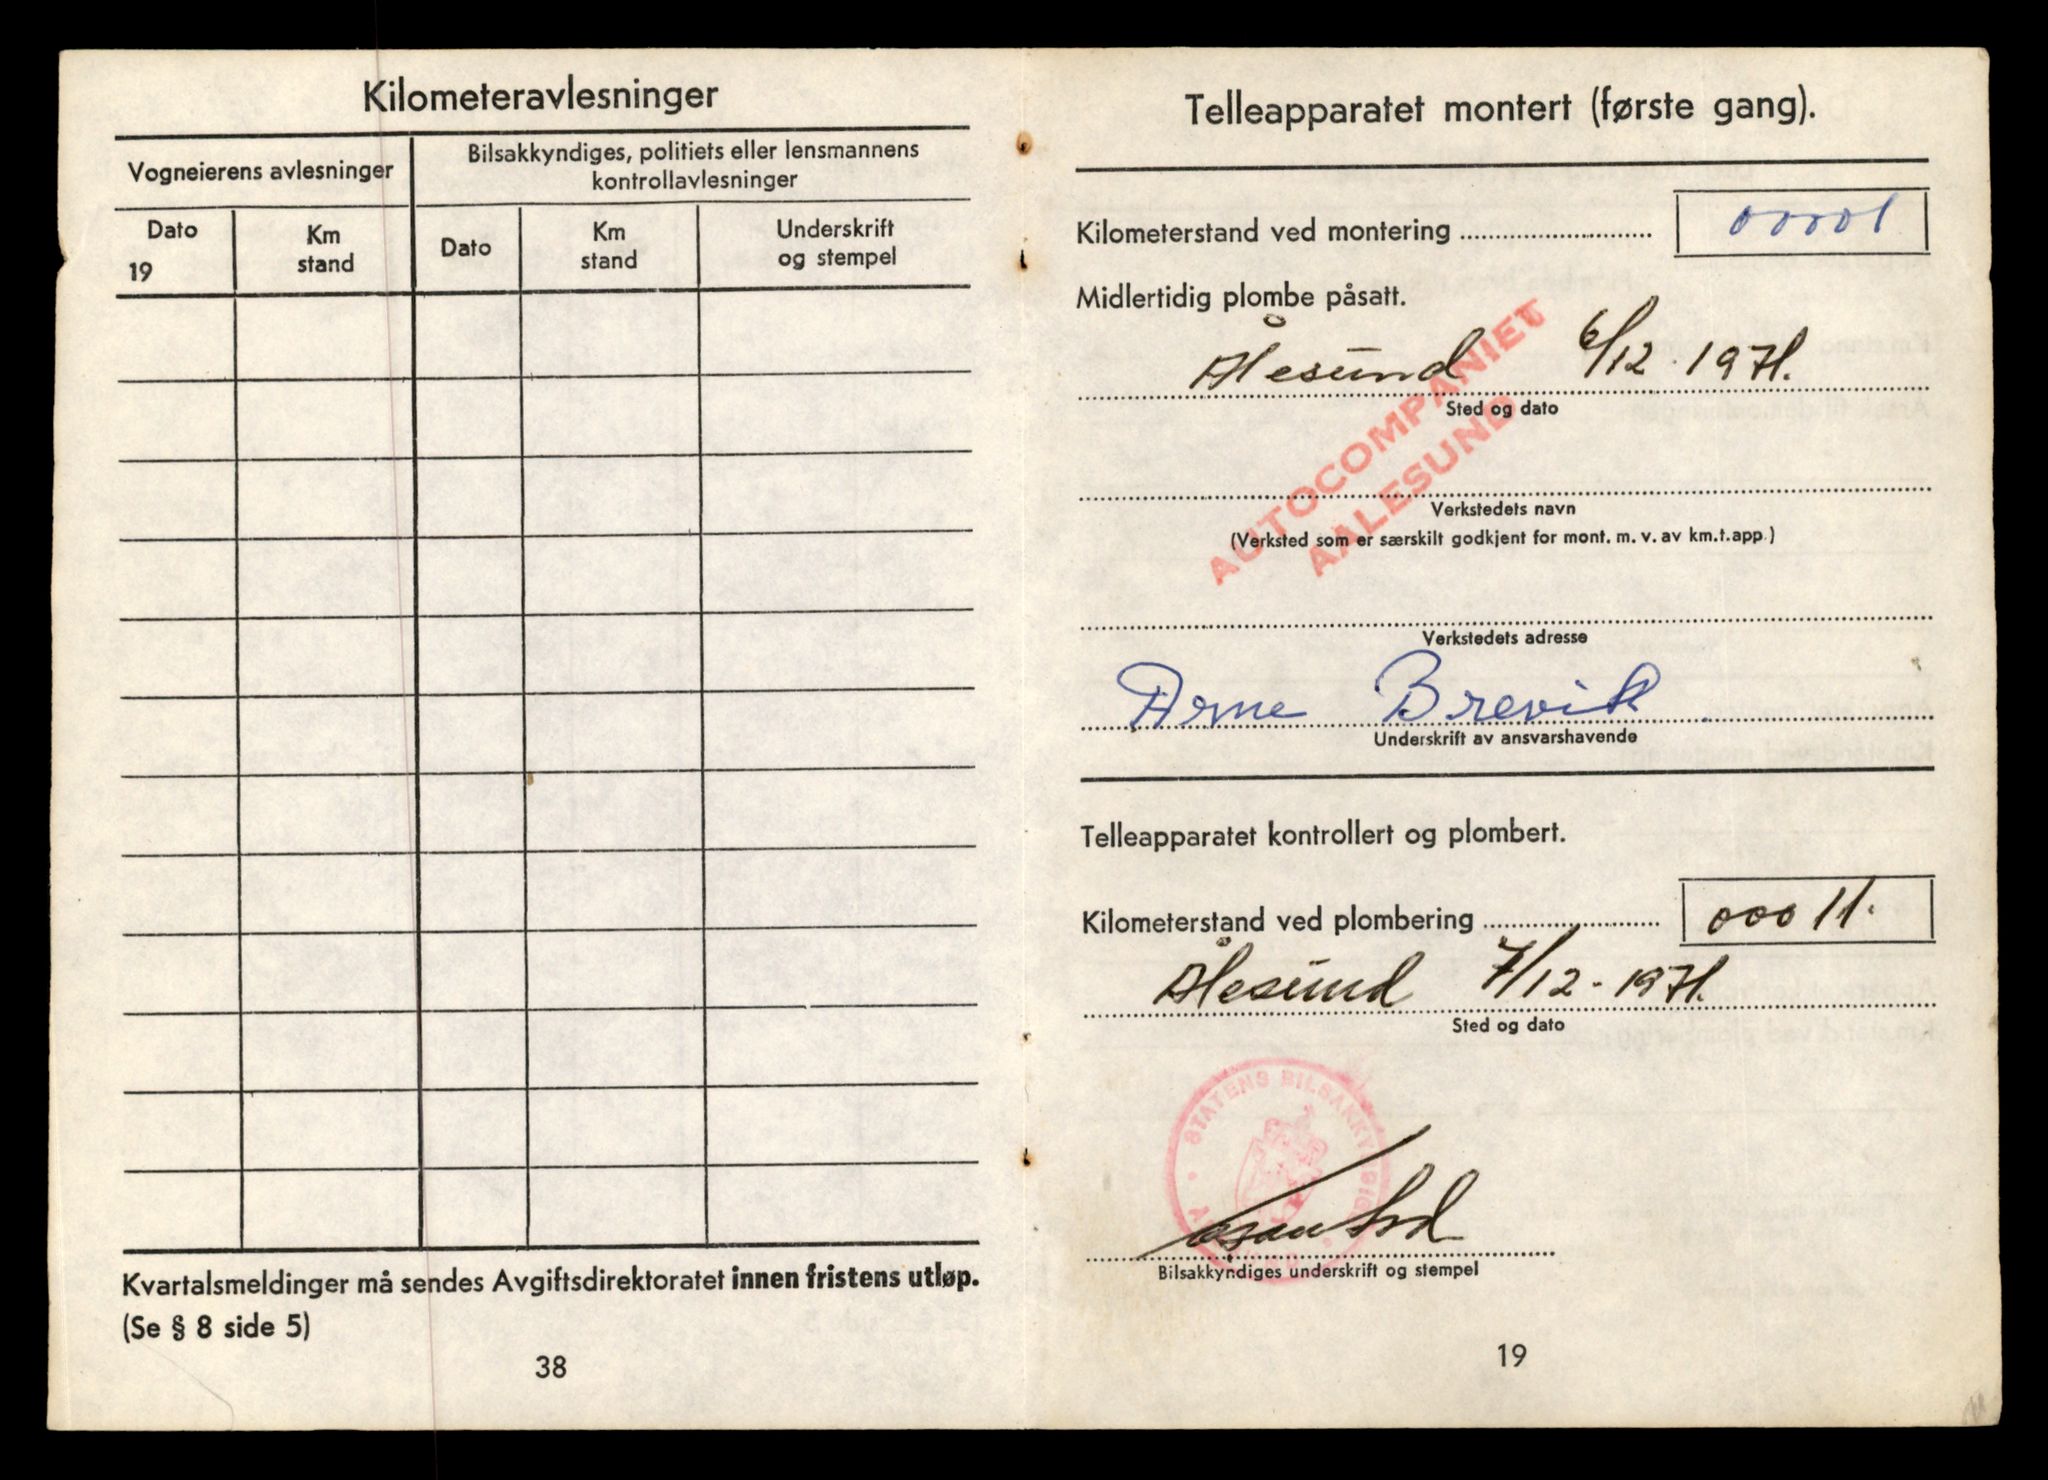 Kilometeravlesninger
Vogneierens avlesninger
Bilsakkyndiges, politiets eller lensmannens
kontrollavlesninger
Dato
19
Km
stand
Dato
Km
stand
Underskrift
og stempel
Kvartalsmeldinger må sendes Avgiftsdirektoratet innen fristens utløp.
(Se § 8 side 5)
38
Telleapparatet montert (første gang).
Kilometerstand ved montering 00001
Midlertidig plombe påsatt.
Ålesund 6/12 - 1971.
Sted og dato
AUTOCOMPANIET
AALESUND
Verkstedets navn
(Verksted som er særskilt godkjent for mont. m. v. av km.t.app.)
Verkstedets adresse
Arne Brevik
Underskrift av ansvarshavende
Telleapparatet kontrollert og plombert.
Kilometerstand ved plombering 00011.
Ålesund 7/12 - 1971.
Sted og dato
STATENS BILSAKKYNDIGE
Bilsakkyndiges underskrift og stempel
19